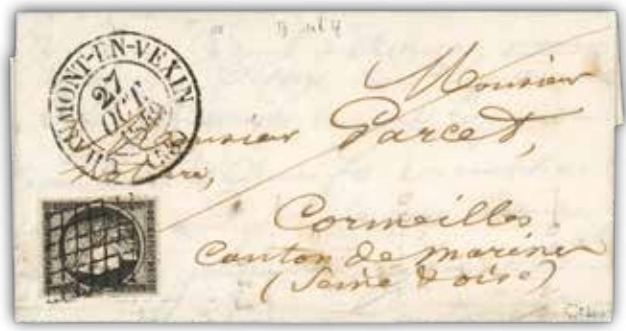 CHAUMONT-EN-VEXIN
27
OCT.
1849
(58)
Monsieur
Monsieur Parcet,
Notaire,
Cormeilles
Canton de marines
(Seine & oise)